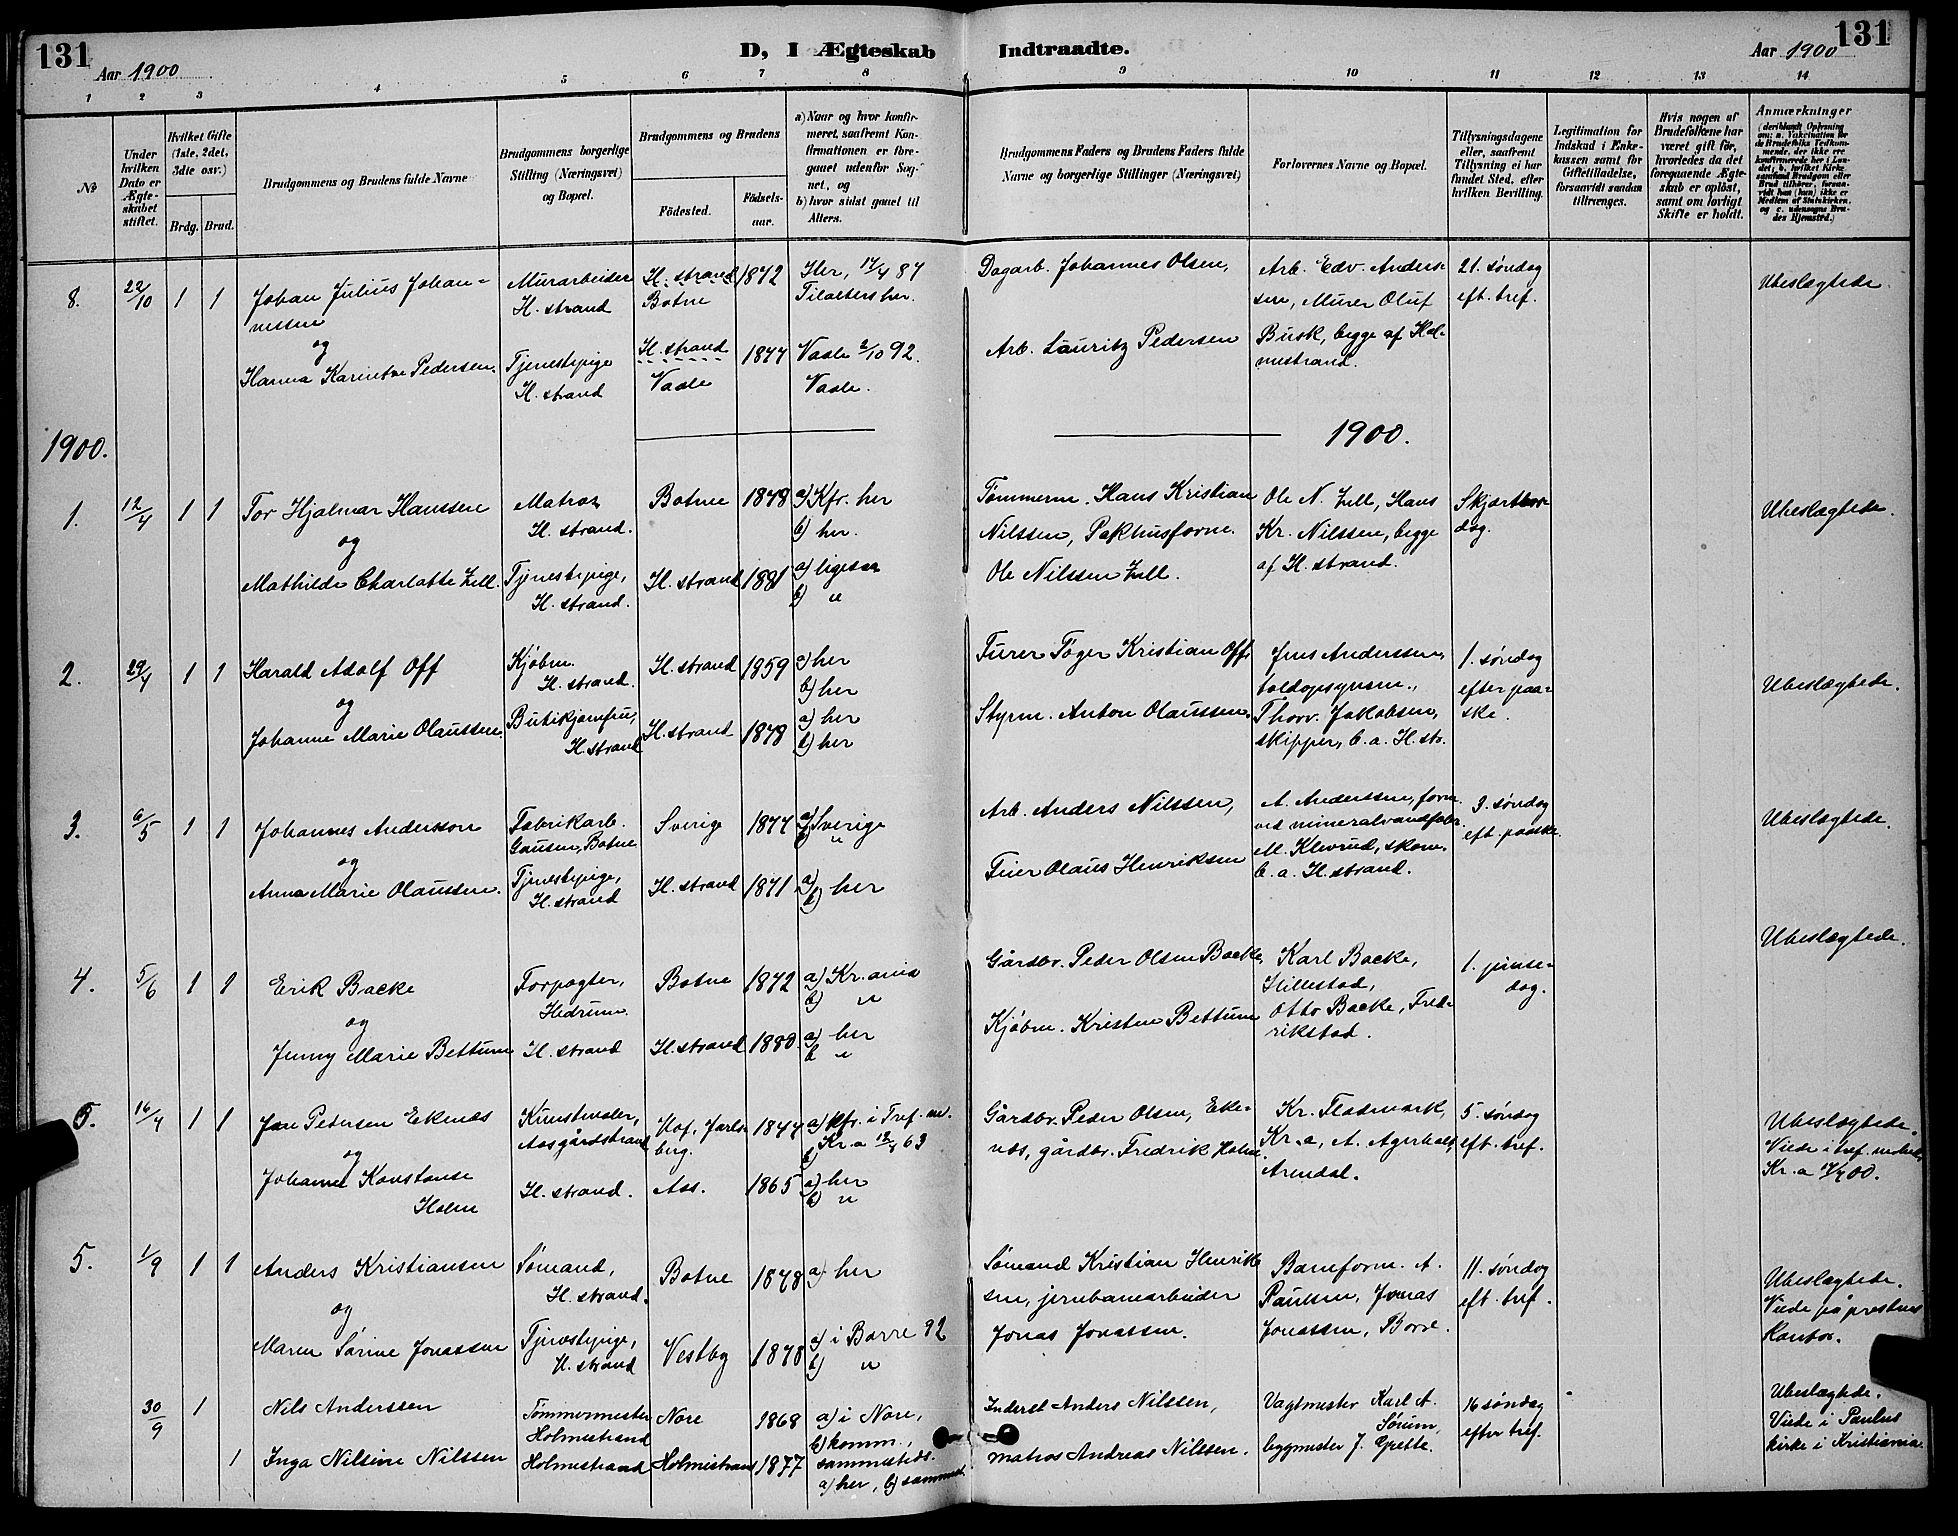 131
Aar 1900
D, I Ægteskab Indtraadte.
Aar 1900
131
1 2 3 4 5 6 7 8 9 10 11 12 13 14
№
Under hvilken Dato er Ægteskabet stiftet.
Hvilket Gifte (1ste, 2det, 3die osv.)
Brdg. Brud.
Brudgommens og Brudens fulde Navne
Brudgommens borgerlige Stilling (Næringsvei) og Bopæl.
Brudgommens og Brudens
Fødested.
Fødsels-aar.
a) Naar og hvor konfirmeret, saafremt Konfirmationen er foregaaet udenfor Sognet, og
b) hvor sidst gaaet til Alters.
Brudgommens Faders og Brudens Faders fulde Navne og borgerlige Stillinger (Næringsvei)
Forlovernes Navne og Bopæl.
Tillysningsdagene eller, saafremt Tillysning ei har fundet Sted, efter hvilken Bevilling.
Legitimation for Indskud i Enkekassen samt for Giftetilladelse, forsaavidt saadan tiltrænges.
Hvis nogen af Brudefolkene har været gift før, hvorledes da det foregaaende Ægteskab er opløst, samt om lovligt Skifte er holdt.
Anmærkninger
8. 22/10 1 1 Johan Julius Johan-
nessen
og
Hanna Karintne Pedersen.
Murarbeider
H. strand
Tjenestepige
H. strand
H. strand
Botne
H. strand
Vaale
1872
1877
Her, 17/4 87
Tilalters her.
Vaale 2/10 92.
Vaale.
Dagarb. Johannes Olsen,
Arb. Lauritz Pedersen
Arb. Edv. Anders-
sen, Murer Oluf
Busk, begge af Hol-
mestrand.
21. søndag
eft. tref.
Ubeslægtede.
1900.
1900.
1. 12/4 1 1 Tor Hjalmar Hanssen
og
Mathilde Charlotte Zell.
Matros
H. strand.
Tjenestepige,
H. strand.
Botne
H. strand
1878
1881
a) Kfr. her
b) her.
a) ligesaa
b) "
Tømmerm. Hans Kristian
Nilssen, Pakhusform.
Ole Nilssen Zell.
Ole N. Zell, Hans
Kr. Nilssen, begge
af H. strand.
Skjærtors-
dag.
Ubeslægtede.
2. 29/4 1 1 Harald Adolf Off
og
Johanne Marie Olaussen.
Kjøbm.
H. strand.
Butikjomfru,
H. strand
H. strand
H. strand
1859
1878
a) her
b) her
a) her
b) her
Furer Tøger Kristian Off.
Styrm. Anton Olaussen.
Jens Anderssen,
toldopsynsm.,
Thorv. Jakobsen,
skipper, b. a. H. str.
1. søndag
efter paa-
ske.
Ubeslægtede.
3. 6/5 1 1 Johannes Anderson
og
Anna Marie Olaussen.
Fabrikarb.
Gausen, Botne
Tjenestepige,
H. strand
Sverige
H. strand
1877
1871
a) Sverige
b) "
a)
b) her
Arb. Anders Nilssen,
Feier Olaus Henriksen
A. Anderssen, form.
ved mineralvandfabr.
M. Klevrud, skom.
b. a. H. strand.
3. søndag
eft. paaske.
Ubeslægtede.
4. 5/6 1 1 Erik Backe
og
Jenny Marie Bettum
Forpagter,
Hedrum.
H. strand
Botne
H. strand
1872
1880
a) Kr.ania
b) "
a) her
b "
Gårdbr. Peder Olsen Backe
Kjøbm. Kristen Bettum
Karl Backe,
Hillestad,
Otto Backe, Fred-
rikstad.
1. pinse-
dag.
Ubeslægtede.
5. 16/7 1 1 Jan Petersen Ekenæs
og
Johanne Konstanse
Holm
Kunstmaler,
Aasgårdstrand
H. strand.
Hof, Jarls-
berg.
Aas.
1847
1865
a) kfr. i Tref. m.
b) Kr.a 63
a) her
b) "
Gårdbr. Peder Olsen, Eke-
næs, gårdbr. Fredrik Holm.
Kr. Flodmark,
Kr.a, A. Agerholt,
Arendal.
5. søndag
eft. tref.
Ubeslægtede.
Viede i tref. menhet,
Kr.a 00.
5. 1/9 1 1 Anders Kristiansen
og
Maren Sørine Jonassen
Sømand,
H. strand.
Tjenestepige,
H. strand
Botne
Vestby
1878
1878
a) her
a) i Borre 92
b) "
Sømand Kristian Henrik-
sen, jernbanearbeider
Jonas Jonassen.
Baneform. A.
Paulsen, Jonas
Jonassen, Borre.
11. søndag
eft. tref.
Ubeslægtede.
Viede på prestens
kontor.
30/9 1 Nils Anderssen
1 Inga Nilsine Nilssen
Tømmermester
Holmestrand
Holmestrand
Nore
Holmestrand
1868
1877
a) i Nore,
b) komm.,
sammesteds.
a) her, b) sammest.
Inderst Anders Nilssen,
matros Andreas Nilssen.
Vagtmester Karl A.
Sørum,
bygmester J. Grette.
16 søndag
efter tref.
Ubeslægtede.
Viede i Paulus
kirke i Kristiania